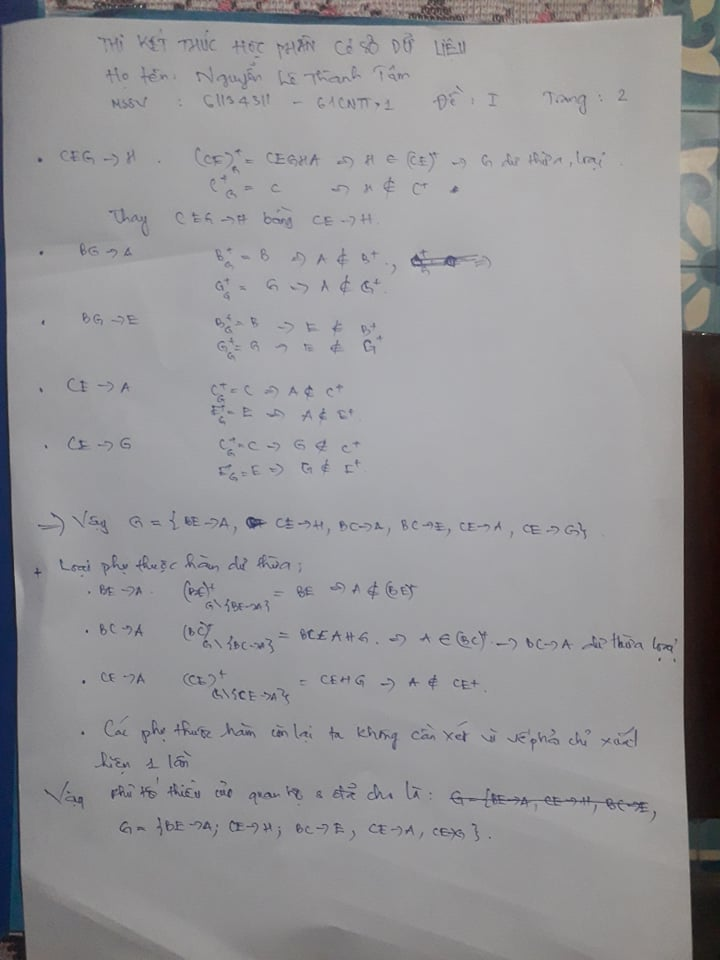 THI KẾT THÚC HỌC PHẦN CƠ SỞ DỮ LIỆU
Họ tên: Nguyễn Lê Thanh Tâm
MSSV : 61134311 - 61CNTT.1 Đề: I Trang: 2
• CEG → H. (CE)⁺_G = CEGHA ⇒ H ∈ (CE)⁺ ⇒ G dư thừa, loại.
C⁺_G = C ⇒ H ∉ C⁺
Thay CEG → H bằng CE → H.
• BG → A B⁺_G = B ⇒ A ∉ B⁺,
G⁺_G = G ⇒ A ∉ G⁺
• BG → E B⁺_G = B ⇒ E ∉ B⁺
G⁺_G = G ⇒ E ∉ G⁺
• CE → A C⁺_G = C ⇒ A ∉ C⁺
E⁺_G = E ⇒ A ∉ E⁺
• CE → G C⁺_G = C ⇒ G ∉ C⁺
E⁺_G = E ⇒ G ∉ E⁺
⇒ Vậy G = {BE → A, CE → H, BC → A, BC → E, CE → A, CE → G}.
+ Loại phụ thuộc hàm dư thừa:
• BE → A. (BE)⁺_G\{BE→A} = BE ⇒ A ∉ (BE)⁺
• BC → A (BC)⁺_G\{BC→A} = BCEAHG. ⇒ A ∈ (BC)⁺ → BC → A dư thừa loại
• CE → A (CE)⁺_G\{CE→A} = CEHG ⇒ A ∉ CE+.
• Các phụ thuộc hàm còn lại ta không cần xét vì vế phải chỉ xuất
hiện 1 lần
Vậy phủ tối thiểu của quan hệ s đã cho là: G = {BE → A, CE → H, BC → E,
G = {BE → A; CE → H; BC → E, CE → A, CE → G}.